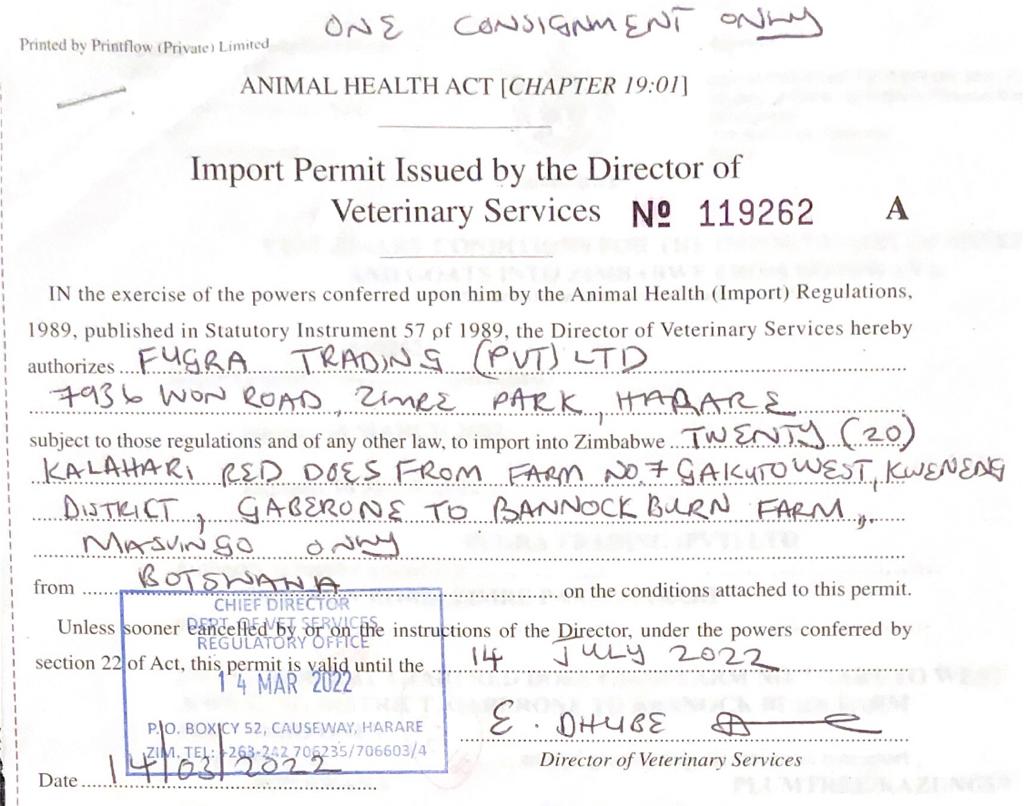 ONE CONSIGNMENT ONLY
Printed by Printflow (Private) Limited
ANIMAL HEALTH ACT [CHAPTER 19:01]
Import Permit Issued by the Director of
Veterinary Services № 119262 A
IN the exercise of the powers conferred upon him by the Animal Health (Import) Regulations,
1989, published in Statutory Instrument 57 of 1989, the Director of Veterinary Services hereby
authorizes FUGRA TRADING (PVT) LTD
7936 WON ROAD, ZIMRE PARK, HARARE
subject to those regulations and of any other law, to import into Zimbabwe TWENTY (20)
KALAHARI RED DOES FROM FARM NO. 7 GAKUTO WEST, KWENENG
DISTRICT, GABERONE TO BANNOCKBURN FARM,
MASVINGO ONLY
from BOTSWANA on the conditions attached to this permit.
CHIEF DIRECTOR
DEPT. OF VET SERVICES
Unless sooner cancelled by or on the instructions of the Director, under the powers conferred by
REGULATORY OFFICE
section 22 of Act, this permit is valid until the 14 JULY 2022
14 MAR 2022
E. DHUBE
P.O. BOX CY 52, CAUSEWAY, HARARE
ZIM. TEL: +263-242 706235/706603/4
Director of Veterinary Services
Date 14/03/2022